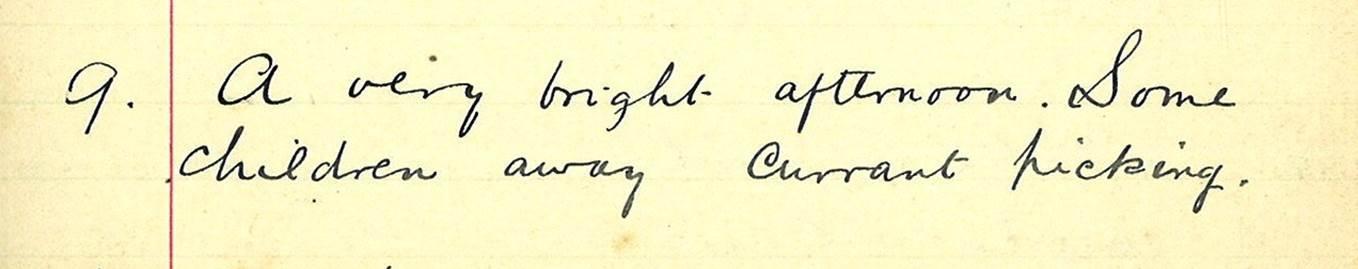 9. A very bright afternoon. Some
children away Currant picking.